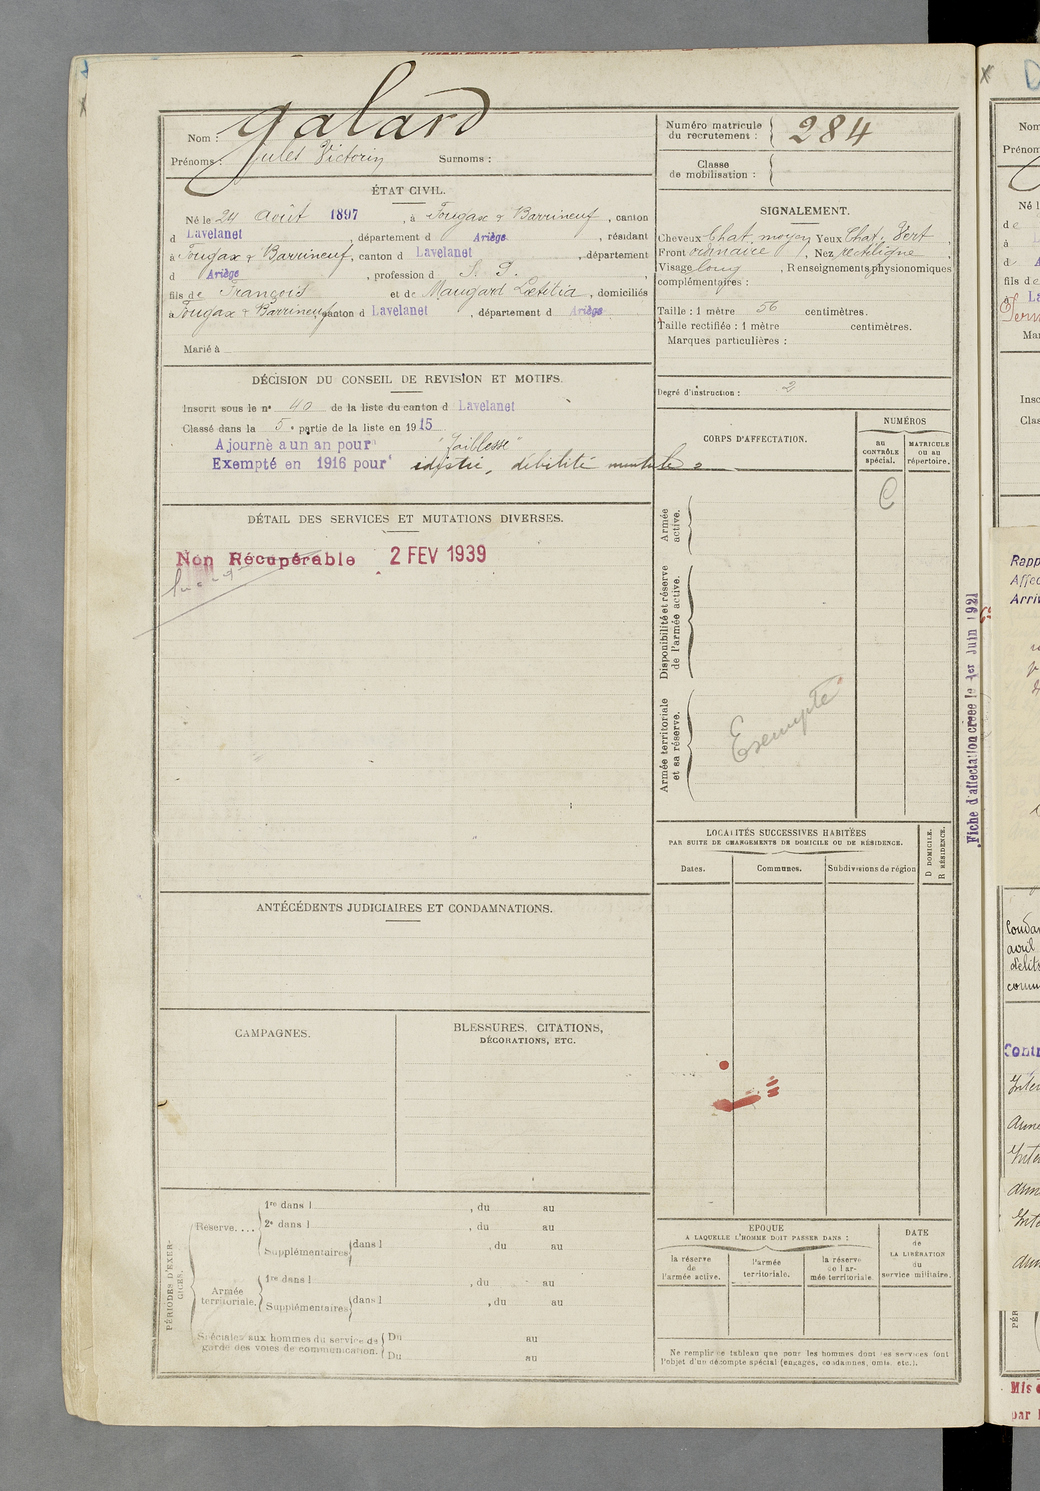 Nom : Galard
Prénoms : Jules Victorin Surnoms :
ÉTAT CIVIL.
Né le 24 Août 1897, à Fougax & Barrineuf, canton
d Lavelanet, département d Ariège, résidant
à Fougax & Barrineuf, canton d Lavelanet, département
d Ariège, profession d S. P.
fils de François et de Maugard Lœtitia, domiciliés
à Fougax & Barrineuf canton d Lavelanet, département d Ariège
Marié à
DÉCISION DU CONSEIL DE REVISION ET MOTIFS.
Inscrit sous le n° 40 de la liste du canton d Lavelanet
Classé dans la 5e partie de la liste en 1915
Ajourné a un an pour "faiblesse"
Exempté en 1916 pour débilité mentale
DÉTAIL DES SERVICES ET MUTATIONS DIVERSES.
Non Récupérable 2 FEV 1939
ANTÉCÉDENTS JUDICIAIRES ET CONDAMNATIONS.
CAMPAGNES.
BLESSURES, CITATIONS,
DÉCORATIONS, ETC.
PÉRIODES D'EXER-
CICES.
Réserve....
1re dans l , du au
2e dans l , du au
Supplémentaires dans l , du au
Armée
territoriale.
1re dans l , du au
Supplémentaires dans l , du au
Spéciales aux hommes du service de
garde des voies de communication.
Du au
Du au
Numéro matricule
du recrutement : 284
Classe
de mobilisation :
SIGNALEMENT.
Cheveux Chat. moyen Yeux Chat. Vert
Front ordinaire, Nez rectiligne
Visage long, Renseignements physionomiques
complémentaires :
Taille : 1 mètre 56 centimètres.
Taille rectifiée : 1 mètre centimètres.
Marques particulières :
Degré d'instruction : 2
CORPS D'AFFECTATION.
NUMÉROS
au
CONTRÔLE
spécial.
MATRICULE
ou au
répertoire.
C
Armée
active.
Disponibilité et réserve
de l'armée active.
Armée territoriale
et sa réserve.
Exempté
LOCALITÉS SUCCESSIVES HABITÉES
PAR SUITE DE CHANGEMENTS DE DOMICILE OU DE RÉSIDENCE.
Dates.
Communes.
Subdivisions de région
D DOMICILE.
R RÉSIDENCE.
EPOQUE
A LAQUELLE L'HOMME DOIT PASSER DANS :
la réserve
de
l'armée active.
l'armée
territoriale.
la réserve
de l'ar-
mée territoriale.
DATE
de
LA LIBÉRATION
du
service militaire.
Ne remplir ce tableau que pour les hommes dont les services font
l'objet d'un décompte spécial (engagés, condamnés, omis, etc.).
Fiche d'affectation créée le 1er Juin 1921